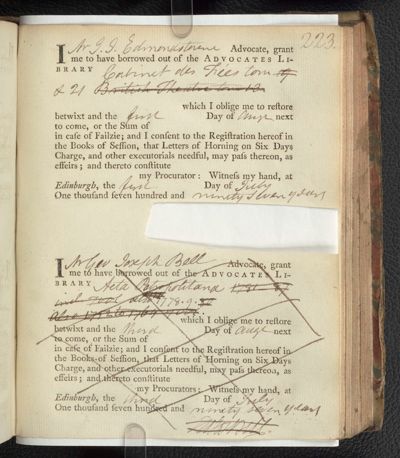 223.
I Mr G. J. Edmondstoune Advocate, grant
me to have borrowed out of the ADVOCATES LI-
BRARY Cabinet des Fées tom 19
& 21 British Theatre tom 13.
which I oblige me to restore
betwixt and the first Day of Augt next
to come, or the Sum of
in case of Failzie; and I consent to the Registration hereof in
the Books of Session, that Letters of Horning on Six Days
Charge, and other executorials needful, may pass thereon, as
effeirs; and thereto constitute
my Procurator: Witness my hand, at
Edinburgh, the first Day of July
One thousand seven hundred and ninety seven years
I Mr Geo Joseph Bell Advocate, grant
me to have borrowed out of the ADVOCATES LI-
BRARY Acta 1781
1778.9.
which I oblige me to restore
betwixt and the third Day of Augt next
to come, or the Sum of
in case of Failzie; and I consent to the Registration hereof in
the Books of Session, that Letters of Horning on Six Days
Charge, and other executorials needful, may pass thereon, as
effeirs; and thereto constitute
my Procurators: Witness my hand, at
Edinburgh, the third Day of July
One thousand seven hundred and ninety seven years